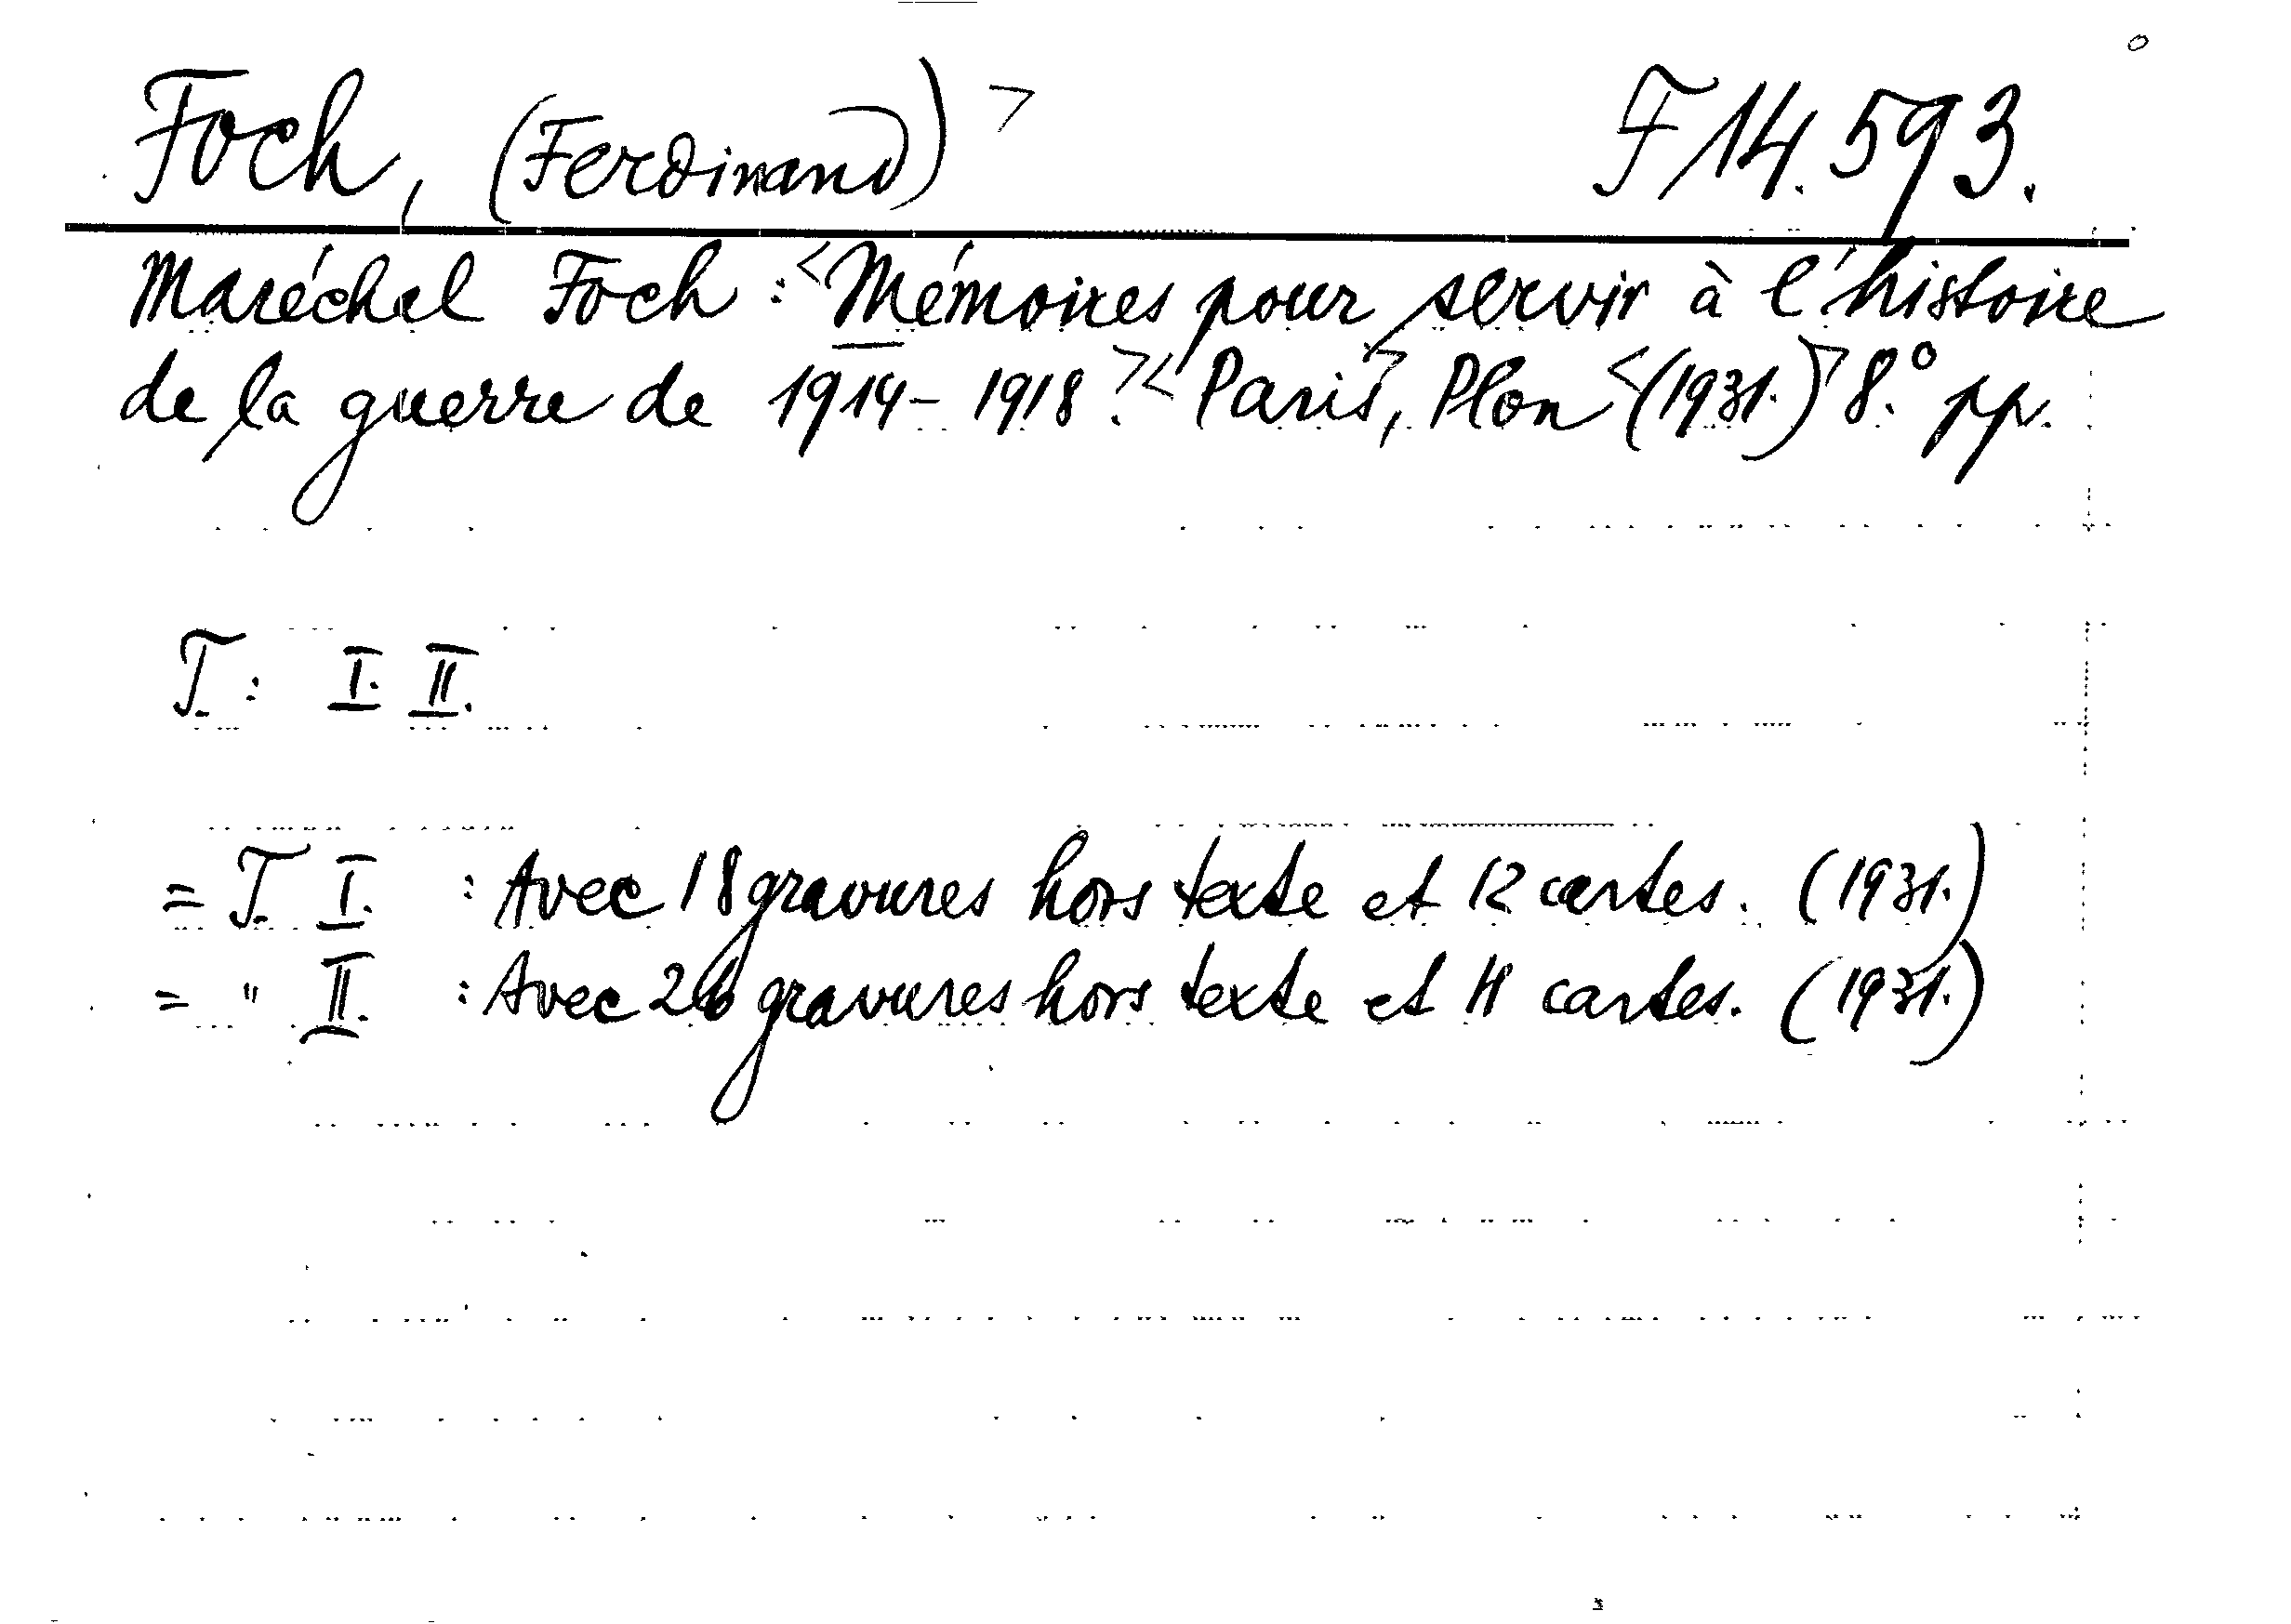 Foch, (Ferdinand)> F 14.593.
Maréchal Foch : <Mémoires pour servir à l'histoire
de la guerre de 1914-1918.><Paris>, Plon <(1931.)> 8.° pp.
T. : I. II.
= T. I. : Avec 18 gravures hors texte et 12 cartes. (1931.)
= " II. : Avec 26 gravures hors texte et 11 cartes. (1931.)